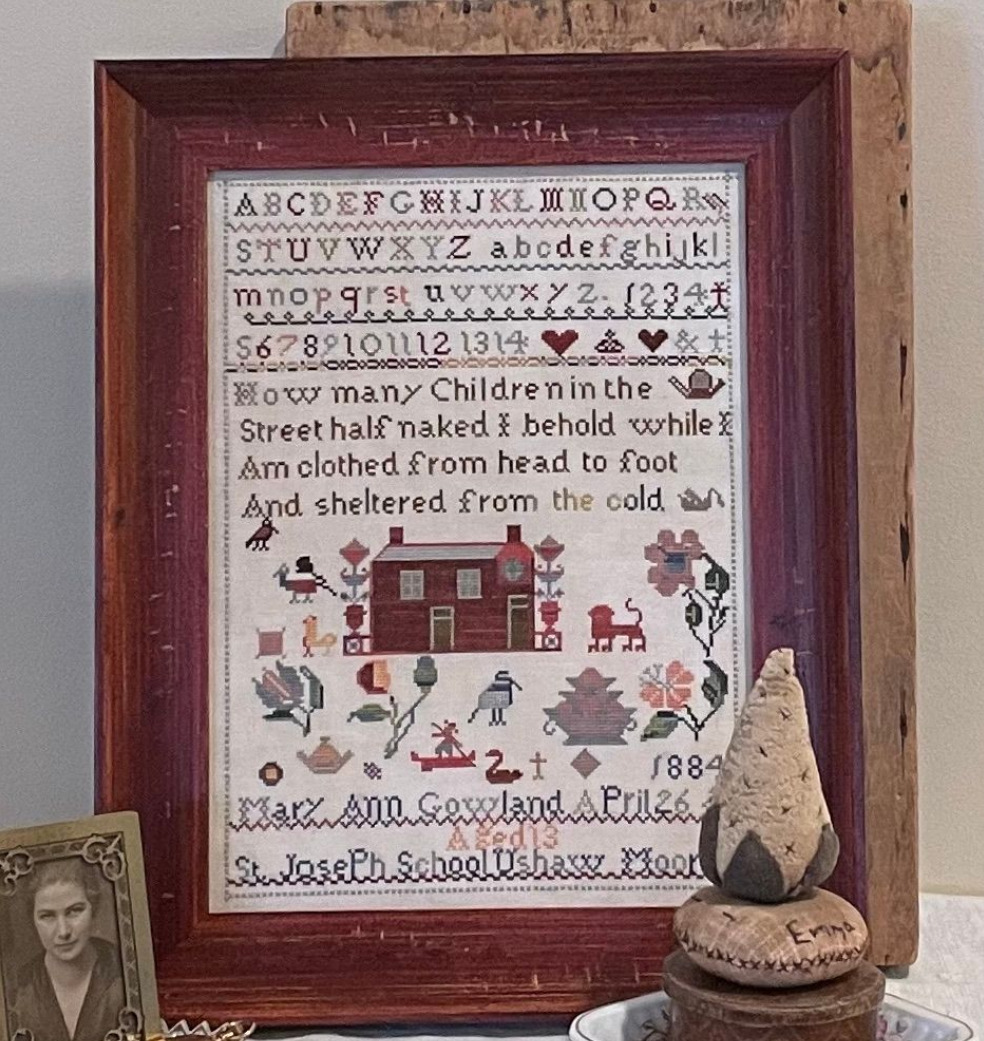 ABCDEFGHIJKLMNOPQR
STUVWXYZ abcdefghijkl
mnopqrst uvwxyz. 1234
567891011121314 &
How many Children in the
Street half naked I behold while I
Am clothed from head to foot
And sheltered from the cold
1884
Mary Ann Gowland APril 26
Aged 13
St. JosePh School Ushaw Moor
Emma